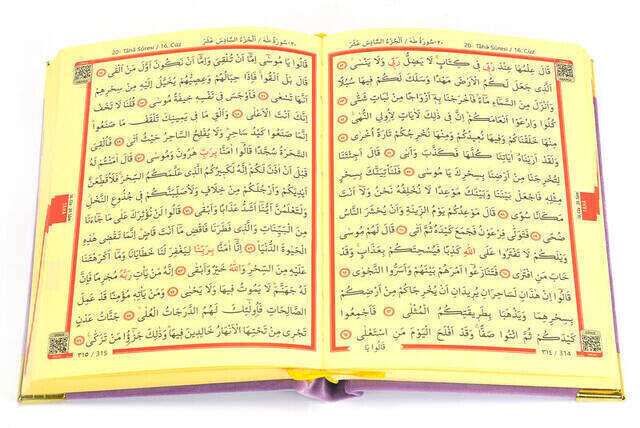 ٢٠- سُورَةُ طٰهٰ / اَلْجُزْءُ السَّادِسَ عَشَرَ
20- Tâhâ Sûresi / 16. Cüz
قَالَ عِلْمُهَا عِنْدَ رَبِّي فِي كِتَابٍ لَا يَضِلُّ رَبِّي وَلَا يَنْسٰى
اَلَّذِي جَعَلَ لَكُمُ الْاَرْضَ مَهْدًا وَسَلَكَ لَكُمْ فِيهَا سُبُلًا
وَاَنْزَلَ مِنَ السَّمَاءِ مَاءً فَاَخْرَجْنَا بِهِ اَزْوَاجًا مِنْ نَبَاتٍ شَتّٰى
كُلُوا وَارْعَوْا اَنْعَامَكُمْ اِنَّ فِي ذٰلِكَ لَاٰيَاتٍ لِاُولِي النُّهٰى
مِنْهَا خَلَقْنَاكُمْ وَفِيهَا نُعِيدُكُمْ وَمِنْهَا نُخْرِجُكُمْ تَارَةً اُخْرٰى
وَلَقَدْ اَرَيْنَاهُ اٰيَاتِنَا كُلَّهَا فَكَذَّبَ وَاَبٰى قَالَ اَجِئْتَنَا
لِتُخْرِجَنَا مِنْ اَرْضِنَا بِسِحْرِكَ يَا مُوسٰى فَلَنَأْتِيَنَّكَ بِسِحْرٍ
مِثْلِهِ فَاجْعَلْ بَيْنَنَا وَبَيْنَكَ مَوْعِدًا لَا نُخْلِفُهُ نَحْنُ وَلَا اَنْتَ
مَكَانًا سُوًى قَالَ مَوْعِدُكُمْ يَوْمُ الزِّينَةِ وَاَنْ يُحْشَرَ النَّاسُ
ضُحًى فَتَوَلّٰى فِرْعَوْنُ فَجَمَعَ كَيْدَهُ ثُمَّ اَتٰى قَالَ
لَهُمْ مُوسٰى وَيْلَكُمْ لَا تَفْتَرُوا عَلَى اللّٰهِ كَذِبًا فَيُسْحِتَكُمْ بِعَذَابٍ وَقَدْ
خَابَ مَنِ افْتَرٰى فَتَنَازَعُوا اَمْرَهُمْ بَيْنَهُمْ وَاَسَرُّوا النَّجْوٰى
قَالُوا اِنْ هٰذَانِ لَسَاحِرَانِ يُرِيدَانِ اَنْ يُخْرِجَاكُمْ مِنْ اَرْضِكُمْ
بِسِحْرِهِمَا وَيَذْهَبَا بِطَرِيقَتِكُمُ الْمُثْلٰى فَاَجْمِعُوا
كَيْدَكُمْ ثُمَّ ائْتُوا صَفًّا وَقَدْ اَفْلَحَ الْيَوْمَ مَنِ اسْتَعْلٰى
قَالُوا يَا
٣١٤ / 314
٢٠- سُورَةُ طٰهٰ / اَلْجُزْءُ السَّادِسَ عَشَرَ
20- Tâhâ Sûresi / 16. Cüz
قَالُوا يَا مُوسٰى اِمَّا اَنْ تُلْقِيَ وَاِمَّا اَنْ نَكُونَ اَوَّلَ مَنْ اَلْقٰى
قَالَ بَلْ اَلْقُوا فَاِذَا حِبَالُهُمْ وَعِصِيُّهُمْ يُخَيَّلُ اِلَيْهِ مِنْ سِحْرِهِمْ
اَنَّهَا تَسْعٰى فَاَوْجَسَ فِي نَفْسِهِ خِيفَةً مُوسٰى قُلْنَا لَا تَخَفْ
اِنَّكَ اَنْتَ الْاَعْلٰى وَاَلْقِ مَا فِي يَمِينِكَ تَلْقَفْ مَا صَنَعُوا
اِنَّمَا صَنَعُوا كَيْدُ سَاحِرٍ وَلَا يُفْلِحُ السَّاحِرُ حَيْثُ اَتٰى فَاُلْقِيَ
السَّحَرَةُ سُجَّدًا قَالُوا اٰمَنَّا بِرَبِّ هٰرُونَ وَمُوسٰى قَالَ اٰمَنْتُمْ لَهُ
قَبْلَ اَنْ اٰذَنَ لَكُمْ اِنَّهُ لَكَبِيرُكُمُ الَّذِي عَلَّمَكُمُ السِّحْرَ فَلَاُقَطِّعَنَّ
اَيْدِيَكُمْ وَاَرْجُلَكُمْ مِنْ خِلَافٍ وَلَاُصَلِّبَنَّكُمْ فِي جُذُوعِ النَّخْلِ
وَلَتَعْلَمُنَّ اَيُّنَا اَشَدُّ عَذَابًا وَاَبْقٰى قَالُوا لَنْ نُؤْثِرَكَ عَلٰى مَا جَاءَنَا
مِنَ الْبَيِّنَاتِ وَالَّذِي فَطَرَنَا فَاقْضِ مَا اَنْتَ قَاضٍ اِنَّمَا تَقْضِي هٰذِهِ
الْحَيٰوةَ الدُّنْيَا اِنَّا اٰمَنَّا بِرَبِّنَا لِيَغْفِرَ لَنَا خَطَايَانَا وَمَا اَكْرَهْتَنَا
عَلَيْهِ مِنَ السِّحْرِ وَاللّٰهُ خَيْرٌ وَاَبْقٰى اِنَّهُ مَنْ يَأْتِ رَبَّهُ مُجْرِمًا فَاِنَّ
لَهُ جَهَنَّمَ لَا يَمُوتُ فِيهَا وَلَا يَحْيٰى وَمَنْ يَأْتِهِ مُؤْمِنًا قَدْ عَمِلَ
الصَّالِحَاتِ فَاُولٰئِكَ لَهُمُ الدَّرَجَاتُ الْعُلٰى جَنَّاتُ عَدْنٍ
تَجْرِي مِنْ تَحْتِهَا الْاَنْهَارُ خَالِدِينَ فِيهَا وَذٰلِكَ جَزٰؤُا مَنْ تَزَكّٰى
٣١٥ / 315